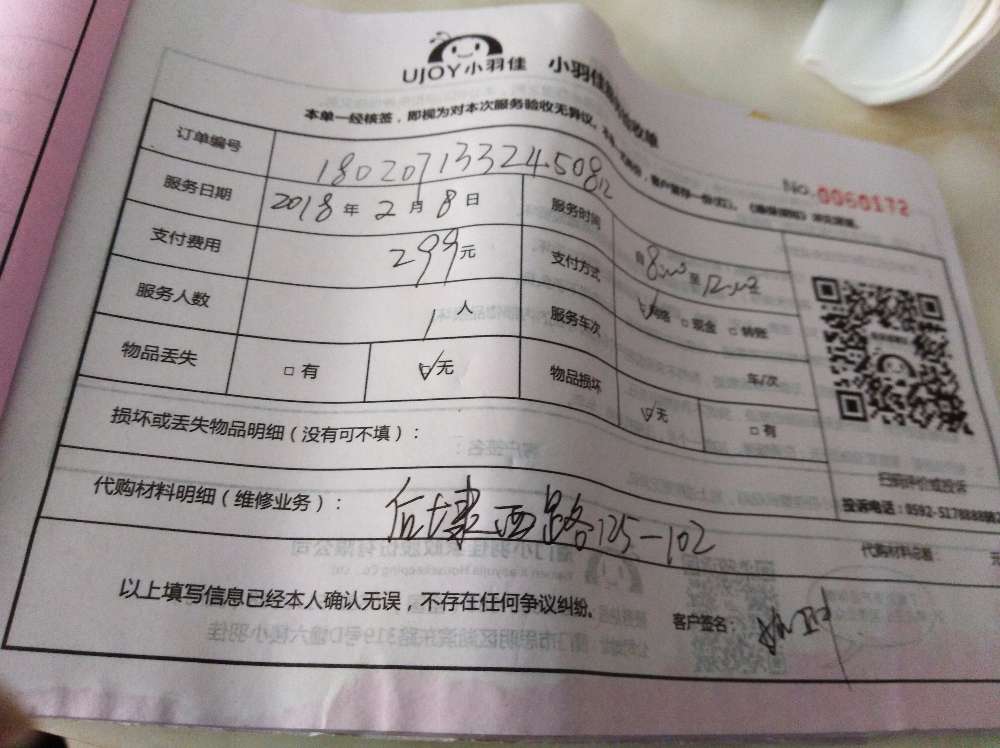 UJOY小羽佳
本单一经核签，即视为对本次服务验收无异议。
No.0060172
订单编号 18020713324508
服务日期 2018年2月8日 服务时间 自8:00至12:00
支付费用 299元 支付方式 现金 转账
服务人数 1人 服务车次 车/次
物品丢失 有 无 物品损坏 无 有
扫码评价或投诉
损坏或丢失物品明细（没有可不填）：
投诉电话：0592-5178888
代购材料明细（维修业务）： 后埭西路125-102
代购材料总额： 元
以上填写信息已经本人确认无误，不存在任何争议纠纷。 客户签名：